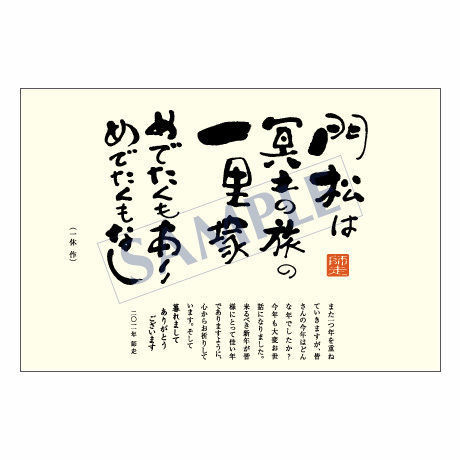 門松は
冥土の旅の
一里塚
めでたくもあり
めでたくもなし
（一休 作）
師走
また一つ年を重ね
ていきますが、皆
さんの今年はどん
な年でしたか？
今年も大変お世
話になりました。
来るべき新年が皆
様にとって佳い年
でありますように、
心からお祈りして
います。そして
暮れまして
ありがとう
ございます
二〇一一年 師走
SAMPLE